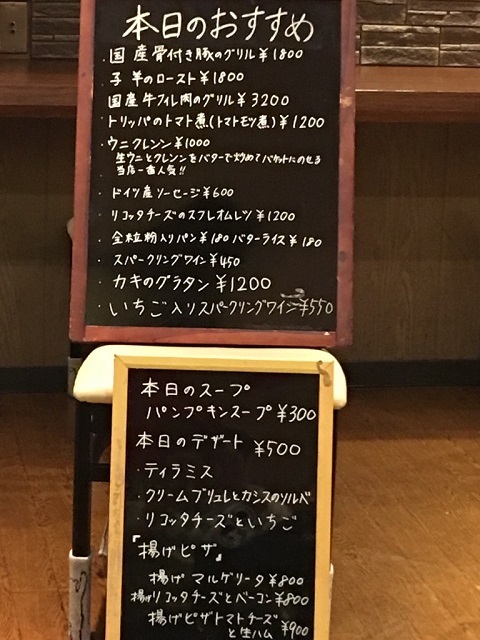 本日のおすすめ
・国産骨付き豚のグリル ¥1800
・子羊のロースト ¥1800
国産牛フィレ肉のグリル ¥3200
・トリッパのトマト煮(トマトモツ煮) ¥1200
・ウニクレソン ¥1000
生ウニとクレソンをバターで炒めてバケットにのせる
当店一番人気!!
・ドイツ産ソーセージ ¥600
・リコッタチーズのスフレオムレツ ¥1200
・全粒粉入りパン ¥180 バターライス ¥180
・スパークリングワイン ¥450
・カキのグラタン ¥1200
・いちご入りスパークリングワイン ¥550
本日のスープ
パンプキンスープ ¥300
本日のデザート ¥500
・ティラミス
・クリームブリュレとカシスのソルベ
・リコッタチーズといちご
『揚げピザ』
揚げマルゲリータ ¥800
揚げリコッタチーズとベーコン ¥800
揚げピザトマトチーズ
と生ハム ¥900